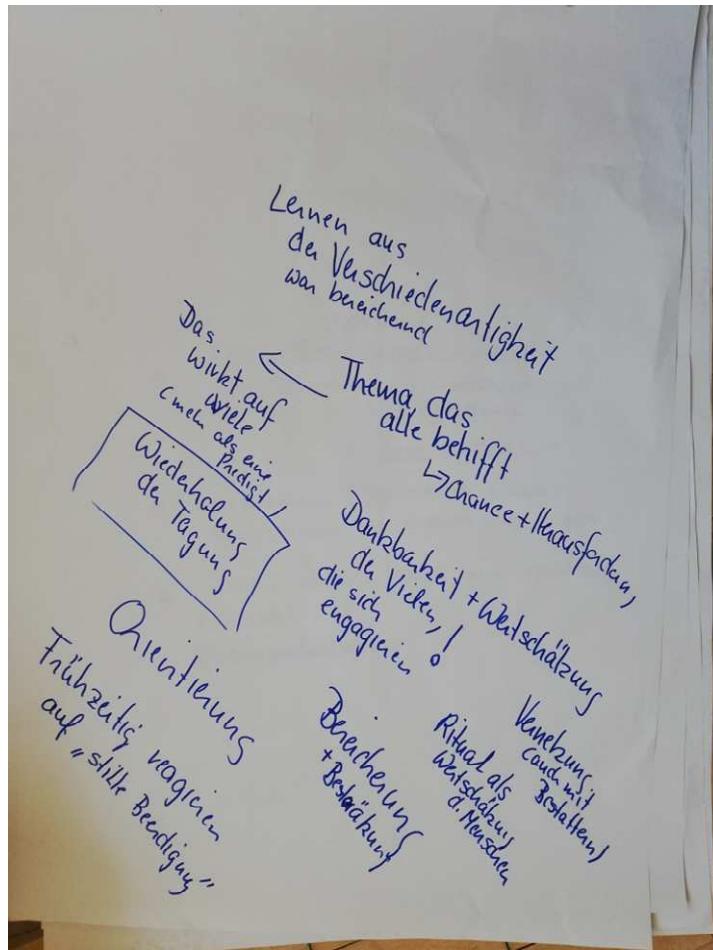 Lernen aus
der Verschiedenartigkeit
war bereichernd
Das
wirkt auf
viele
(mehr als eine
Predigt)
Thema, das
alle betrifft
↳ Chance + Herausforderung
Wiederholung
der Tagung
Dankbarkeit + Wertschätzung
der Vielen,
die sich
engagieren !
Orientierung
Frühzeitig reagieren
auf „stille Beerdigung“
Bereicherung
+ Bestärkung
Ritual als
Wertschätzung
d. Menschen
Vernetzung
(auch mit
Bestattern)